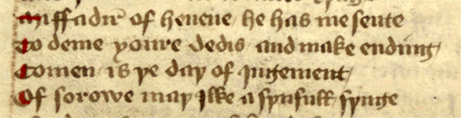 Missadir of heuene he has me sente
To deme youre dedis and make ending
Comen is þe day of jugement
Of sorowe may Ilke a synfull synge